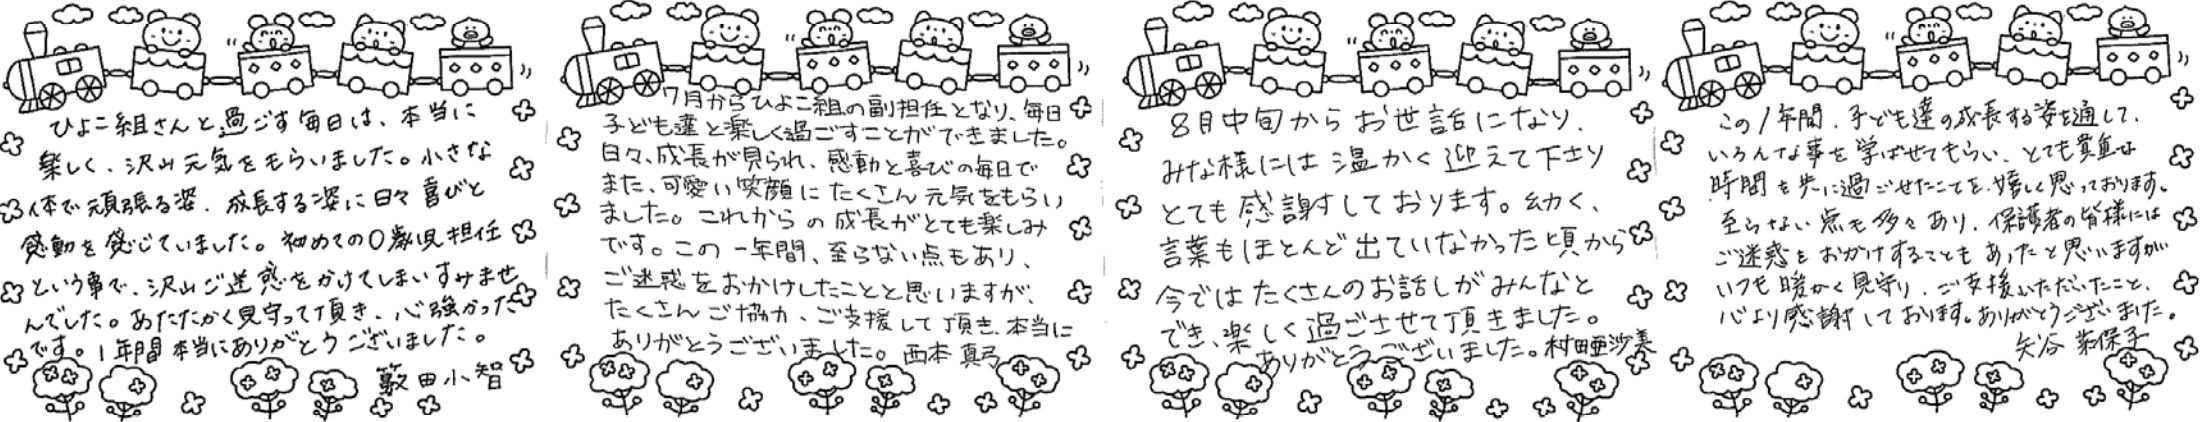 ひよこ組さんと過ごす毎日は、本当に
楽しく、沢山元気をもらいました。小さな
体で頑張る姿、成長する姿に日々喜びと
感動を感じていました。初めての0歳児担任
という事で、沢山ご迷惑をかけてしまいすみませ
んでした。あたたかく見守って頂き、心強かった
です。1年間本当にありがとうございました。
籔田小智
7月からひよこ組の副担任となり、毎日
子ども達と楽しく過ごすことができました。
日々、成長が見られ、感動と喜びの毎日で
また、可愛い笑顔にたくさん元気をもらい
ました。これからの成長がとても楽しみ
です。この一年間、至らない点もあり、
ご迷惑をおかけしたことと思いますが、
たくさんご協力、ご支援して頂き、本当に
ありがとうございました。西本真弓
8月中旬からお世話になり、
みな様には温かく迎えて下さり
とても感謝しております。幼く、
言葉もほとんど出ていなかった頃から
今ではたくさんのお話しがみんなと
でき、楽しく過ごさせて頂きました。
ありがとうございました。村田亜沙美
この1年間、子ども達の成長する姿を通して、
いろんな事を学ばせてもらい、とても貴重な
時間を共に過ごせたことを、嬉しく思っております。
至らない点も多々あり、保護者の皆様には
ご迷惑をおかけすることもあったと思いますが
いつも暖かく見守り、ご支援いただいたこと、
心より感謝しております。ありがとうございました。
矢谷 保子